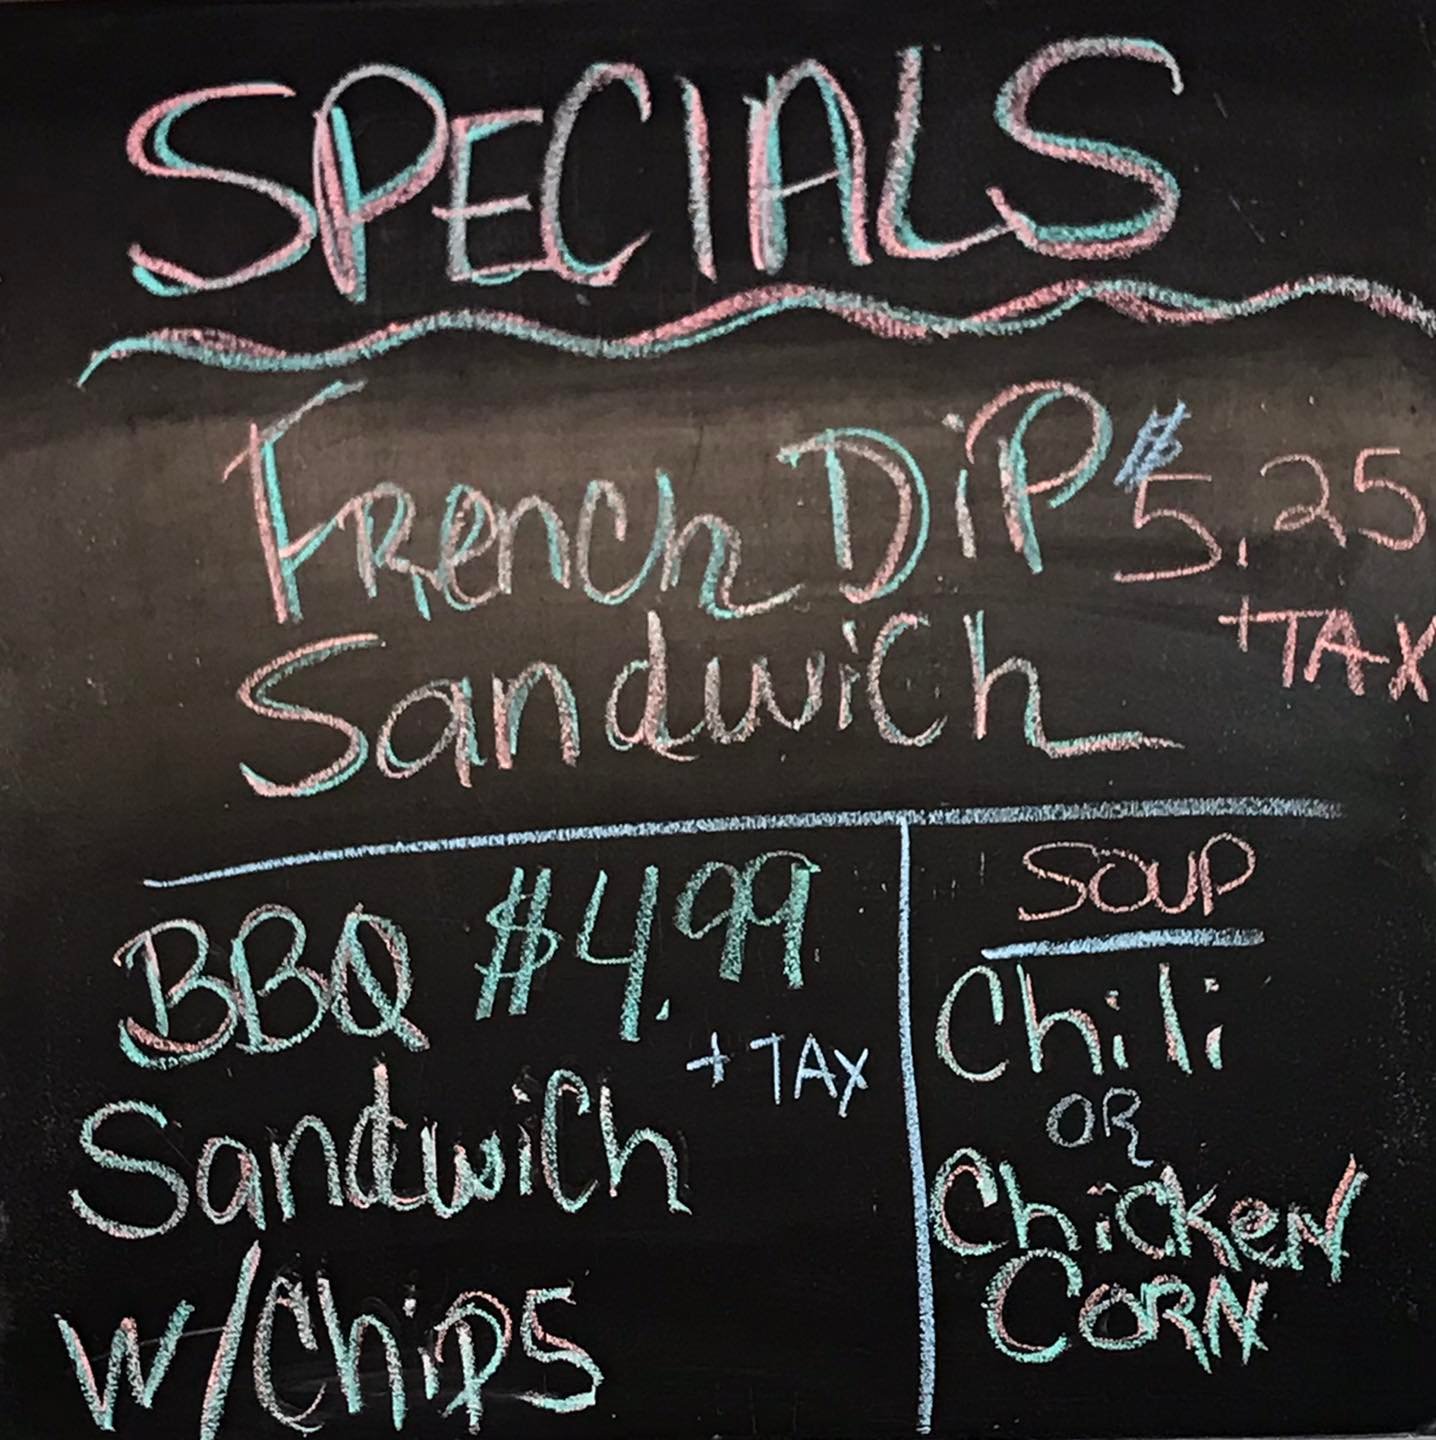 SPECIALS
French Dip $5.25
+TAX
Sandwich
BBQ $4.99
+TAX
Sandwich
w/Chips
SOUP
Chili
OR
Chicken
Corn